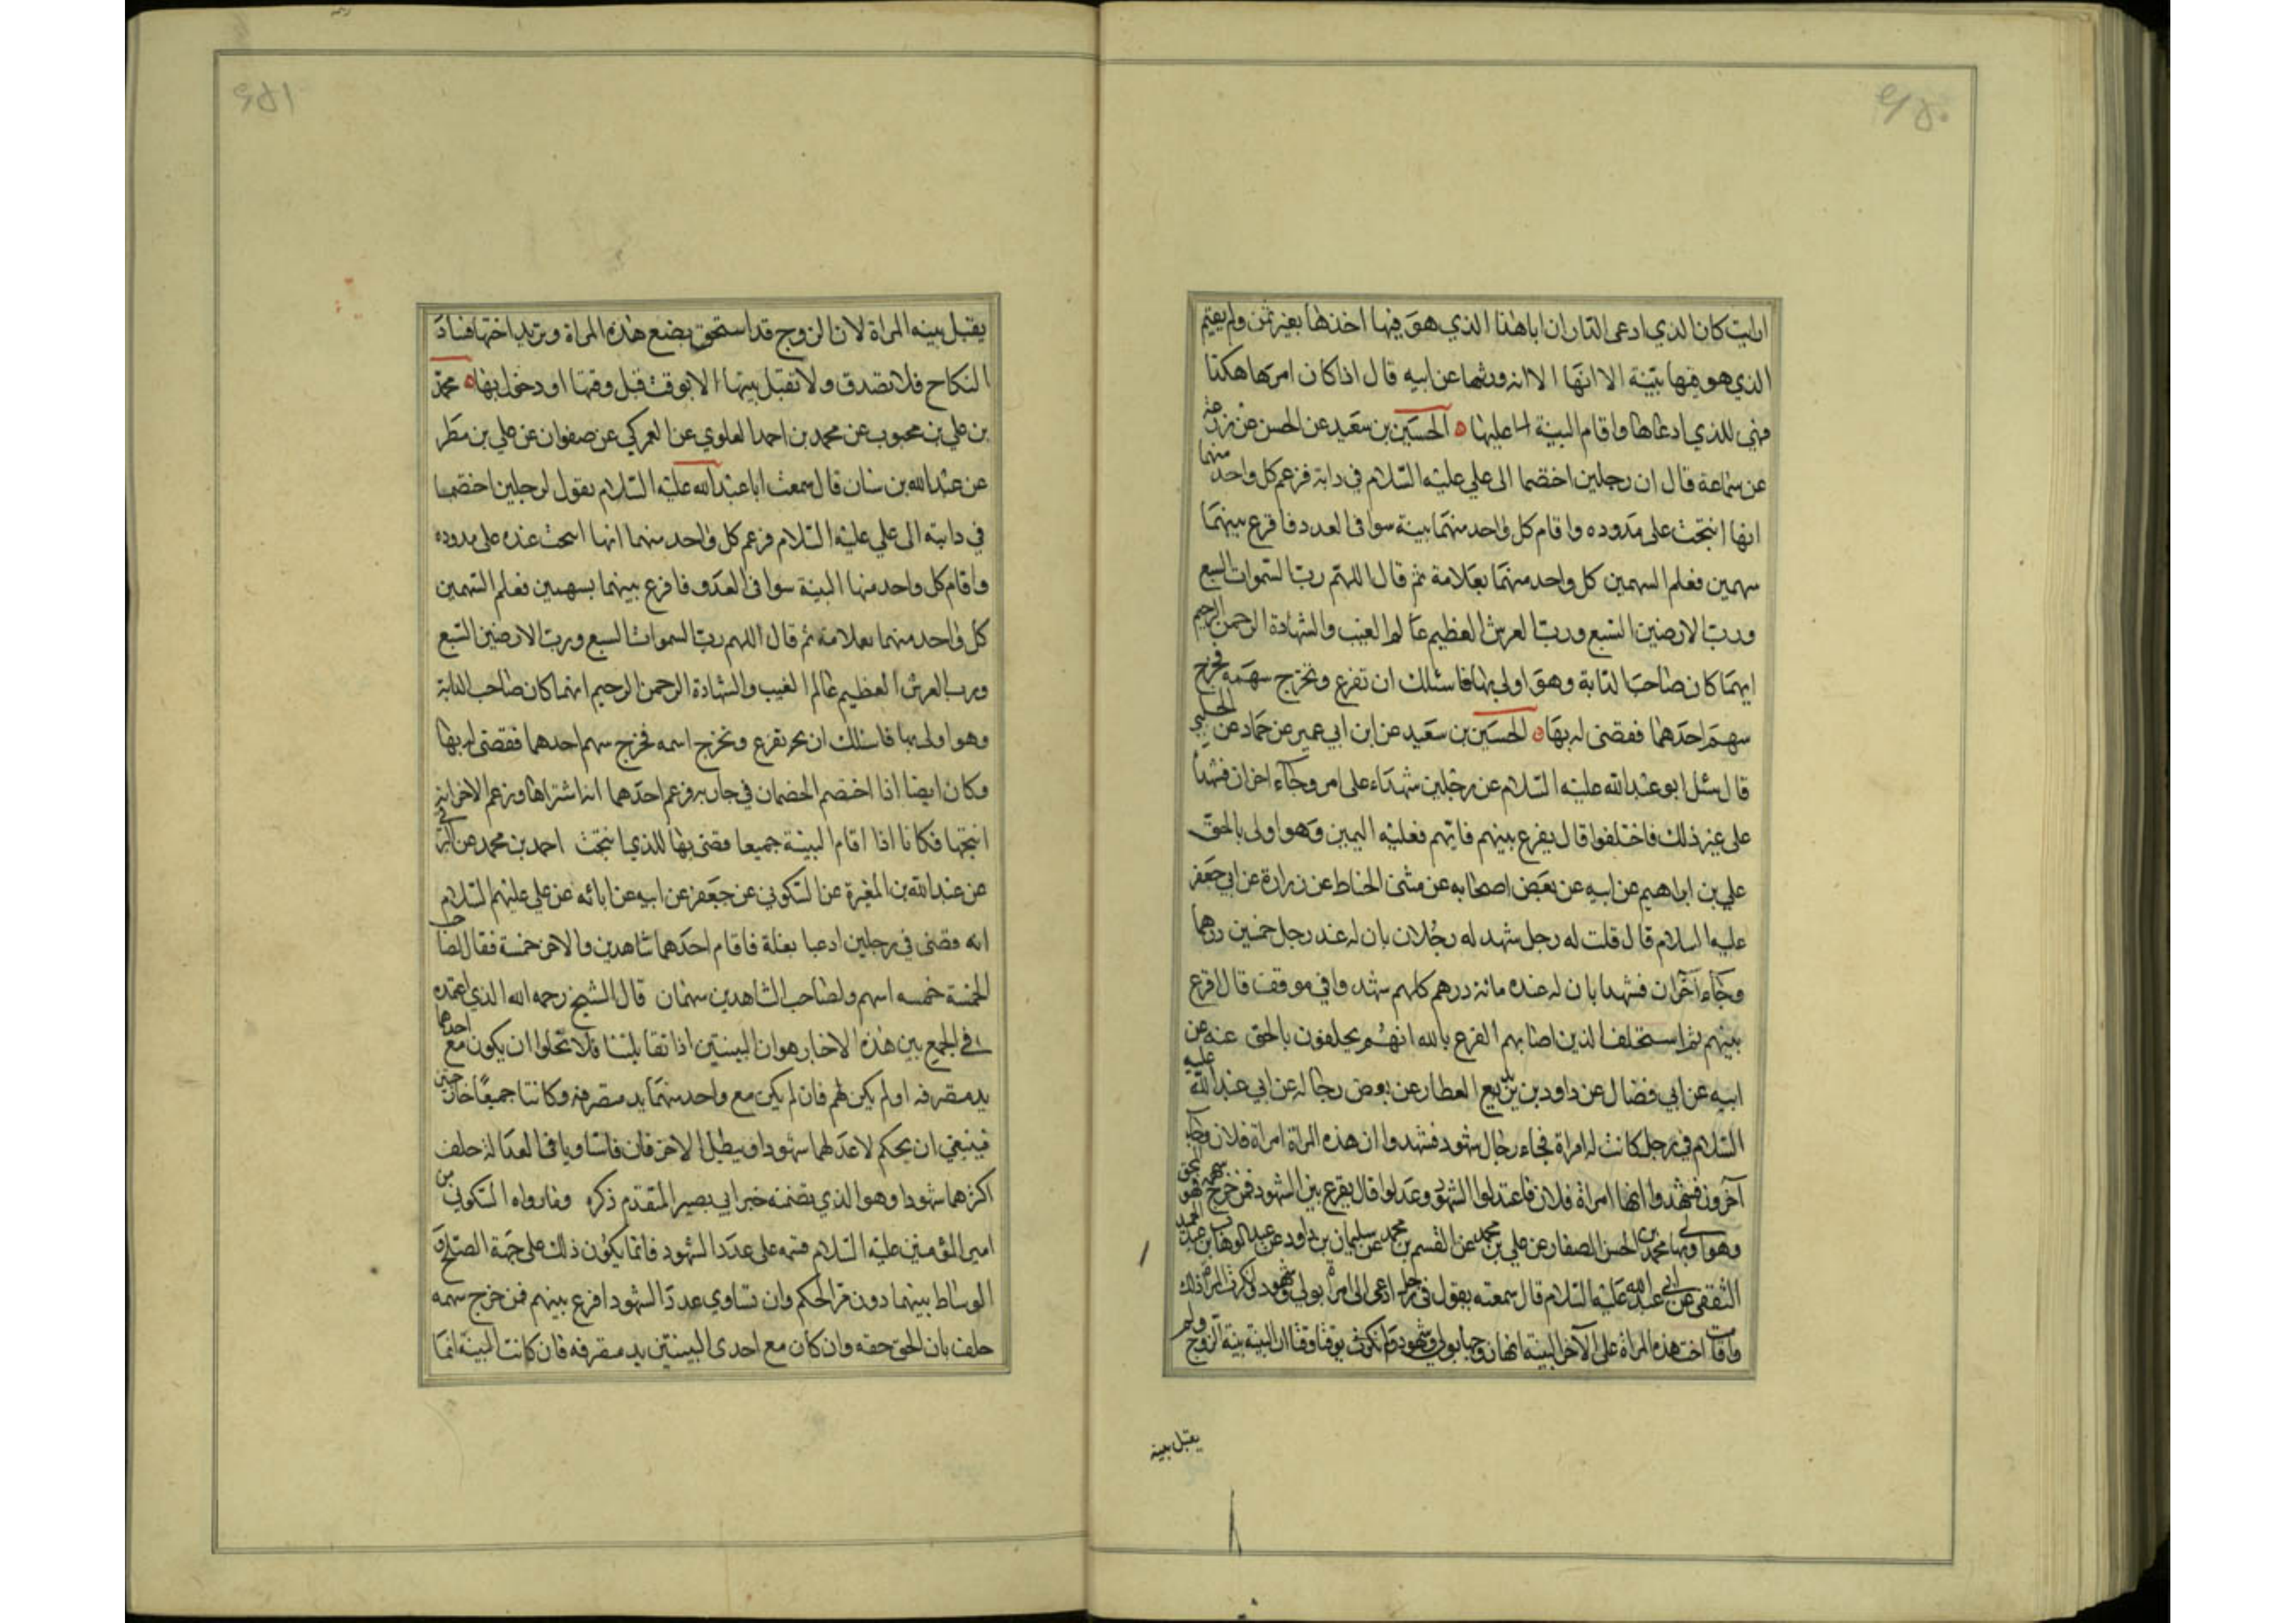 ارايت كان الذي ادعى الدار ان اباهذا الذي هو فيها اخذها بغير ثمن ولم يقيم
الذي هو فيها بينة الا انها الا انه ورثها عن ابيه قال اذا كان امرها هكذا
فهي للذي ادعاها واقام البينة عليها الحسين بن سعيد عن الحسن عن زرعة
عن سماعة قال ان رجلين اختصما الى علي عليه السلام في دابة فزعم كل واحد منهما
انها انتجت على مدوده واقام كل واحد منهما بينة سوا في العدد فاقرع بينهما
سهمين فعلم السهمين كل واحد منهما بعلامة ثم قال اللهم رب السموات السبع
ورب الارضين السبع ورب العرش العظيم عالم الغيب والشهادة الرحمن الرحيم
ايهما كان صاحب الدابة وهو اولى بها فاسئلك ان تقرع وتخرج سهمه فخرج
سهم احدهما فقضى له بها الحسين بن سعيد عن ابن ابي عمير عن حماد عن الحلبي
قال سئل ابو عبد الله عليه السلام عن رجلين شهداء على امر وجاء اخران فشهدا
على غير ذلك فاختلفوا قال يقرع بينهم فايهم فعليه اليمين وهو اولى بالحق
علي بن ابراهيم عن ابيه عن بعض اصحابه عن مثنى الحناط عن زرارة عن ابي جعفر
عليه السلام قال قلت له رجل شهد له رجلان بان له عند رجل خمسين درهما
وجاء آخران فشهدا بان له عنده مائة درهم كلهم شهد وافي موقف قال اقرع
بينهم ثم استحلف الذين اصابهم القرع بالله انهم يحلفون بالحق عنه عن
ابيه عن ابي فضال عن داود بن يزيع العطار عن بعض رجاله عن ابي عبد الله عليه
السلام في رجل كانت له امراة فجاء رجال شهود فشهدوا ان هذه المراة امراة فلان وجاء
آخرون فشهدوا انها امراة فلان فاعتدلوا الشهود وعدلوا قال يقرع بين الشهود فمن خرج سهمه فهو المحق
وهو اولى بها محمد بن الحسن الصفار عن علي بن محمد عن القسم بن محمد عن سليمان بن داود عن عبد الوهاب بن عبد الحميد
الثقفي عن ابي عبد الله عليه السلام قال سمعته يقول في رجل ادعى الى امراة بولي وشهود وانكرت المراة ذلك
واقامت اخت هذه المراة على الآخر البينة انه زوجها بولي وشهود ولم تكن في يوقتا وقتا ان البينة بينة الزوج ولم
يقبل بينه
يقبل بينه المراة لان الزوج قد استحق بضع هذه المراة وتريد اختها فساد
النكاح فلا تصدق ولا تقبل بينتها الا بوقت قبل وقتها او دخول بها محمد
بن علي بن محبوب عن محمد بن احمد العلوي عن العمركي عن صفوان عن علي بن مطر
عن عبد الله بن سنان قال سمعت ابا عبد الله عليه السلام يقول لرجلين اختصما
في دابته الى علي عليه السلام فزعم كل واحد منهما انها انتجت عنده على مدوده
واقام كل واحد منهما البينة سوا في العدد فاقرع بينهما بسهمين فعلم السهمين
كل واحد منهما بعلامة ثم قال اللهم رب السموات السبع ورب الارضين السبع
ورب العرش العظيم عالم الغيب والشهادة الرحمن الرحيم ايهما كان صاحب الدابة
وهو اولى بها فاسئلك ان تقرع وتخرج اسمه فخرج سهم احدهما فقضى له بها
وكان ايضا اذا اختصم الخصمان في جارية فزعم احدهما انه اشتراها وزعم الاخر انه
انتجها فكانا اذا اقام البينة جميعا قضى بها للذي انتجت احمد بن محمد عن ابيه
عن عبد الله بن المغيرة عن السكوني عن جعفر عن ابيه عن ابائه عن علي عليهم السلام
انه قضى في رجلين ادعيا بغلة فاقام احدهما شاهدين والاخر خمسة فقال لصاحب
الخمسة خمسه اسهم ولصاحب الشاهدين سهمان قال الشيخ رحمه الله الذي اعتمده
في الجمع بين هذه الاخبار هو ان البينتين اذا تقابلتا فلا تخلوا ان يكون مع احدهما
يد متصرفه او لم يكن لهم فان لم يكن مع واحد منهما يد متصرفه وكانتا جميعا خارجتين
فينبغي ان يحكم لاعدلهما شهودا ويبطل الاخر فان تساويا في العدالة حلف
اكثرهما شهودا وهو الذي يتضمنه خبر ابي بصير المتقدم ذكره وما رواه السكوني من
امير المؤمنين عليه السلام قسمه على عدد الشهود فانما يكون ذلك على جهة الصلح و
الوساط بينهما دون مر الحكم وان تساوي عدد الشهود اقرع بينهم فمن خرج سهمه
حلف بان الحق حقه وان كان مع احدى البينتين يد متصرفه فان كانت البينة انما